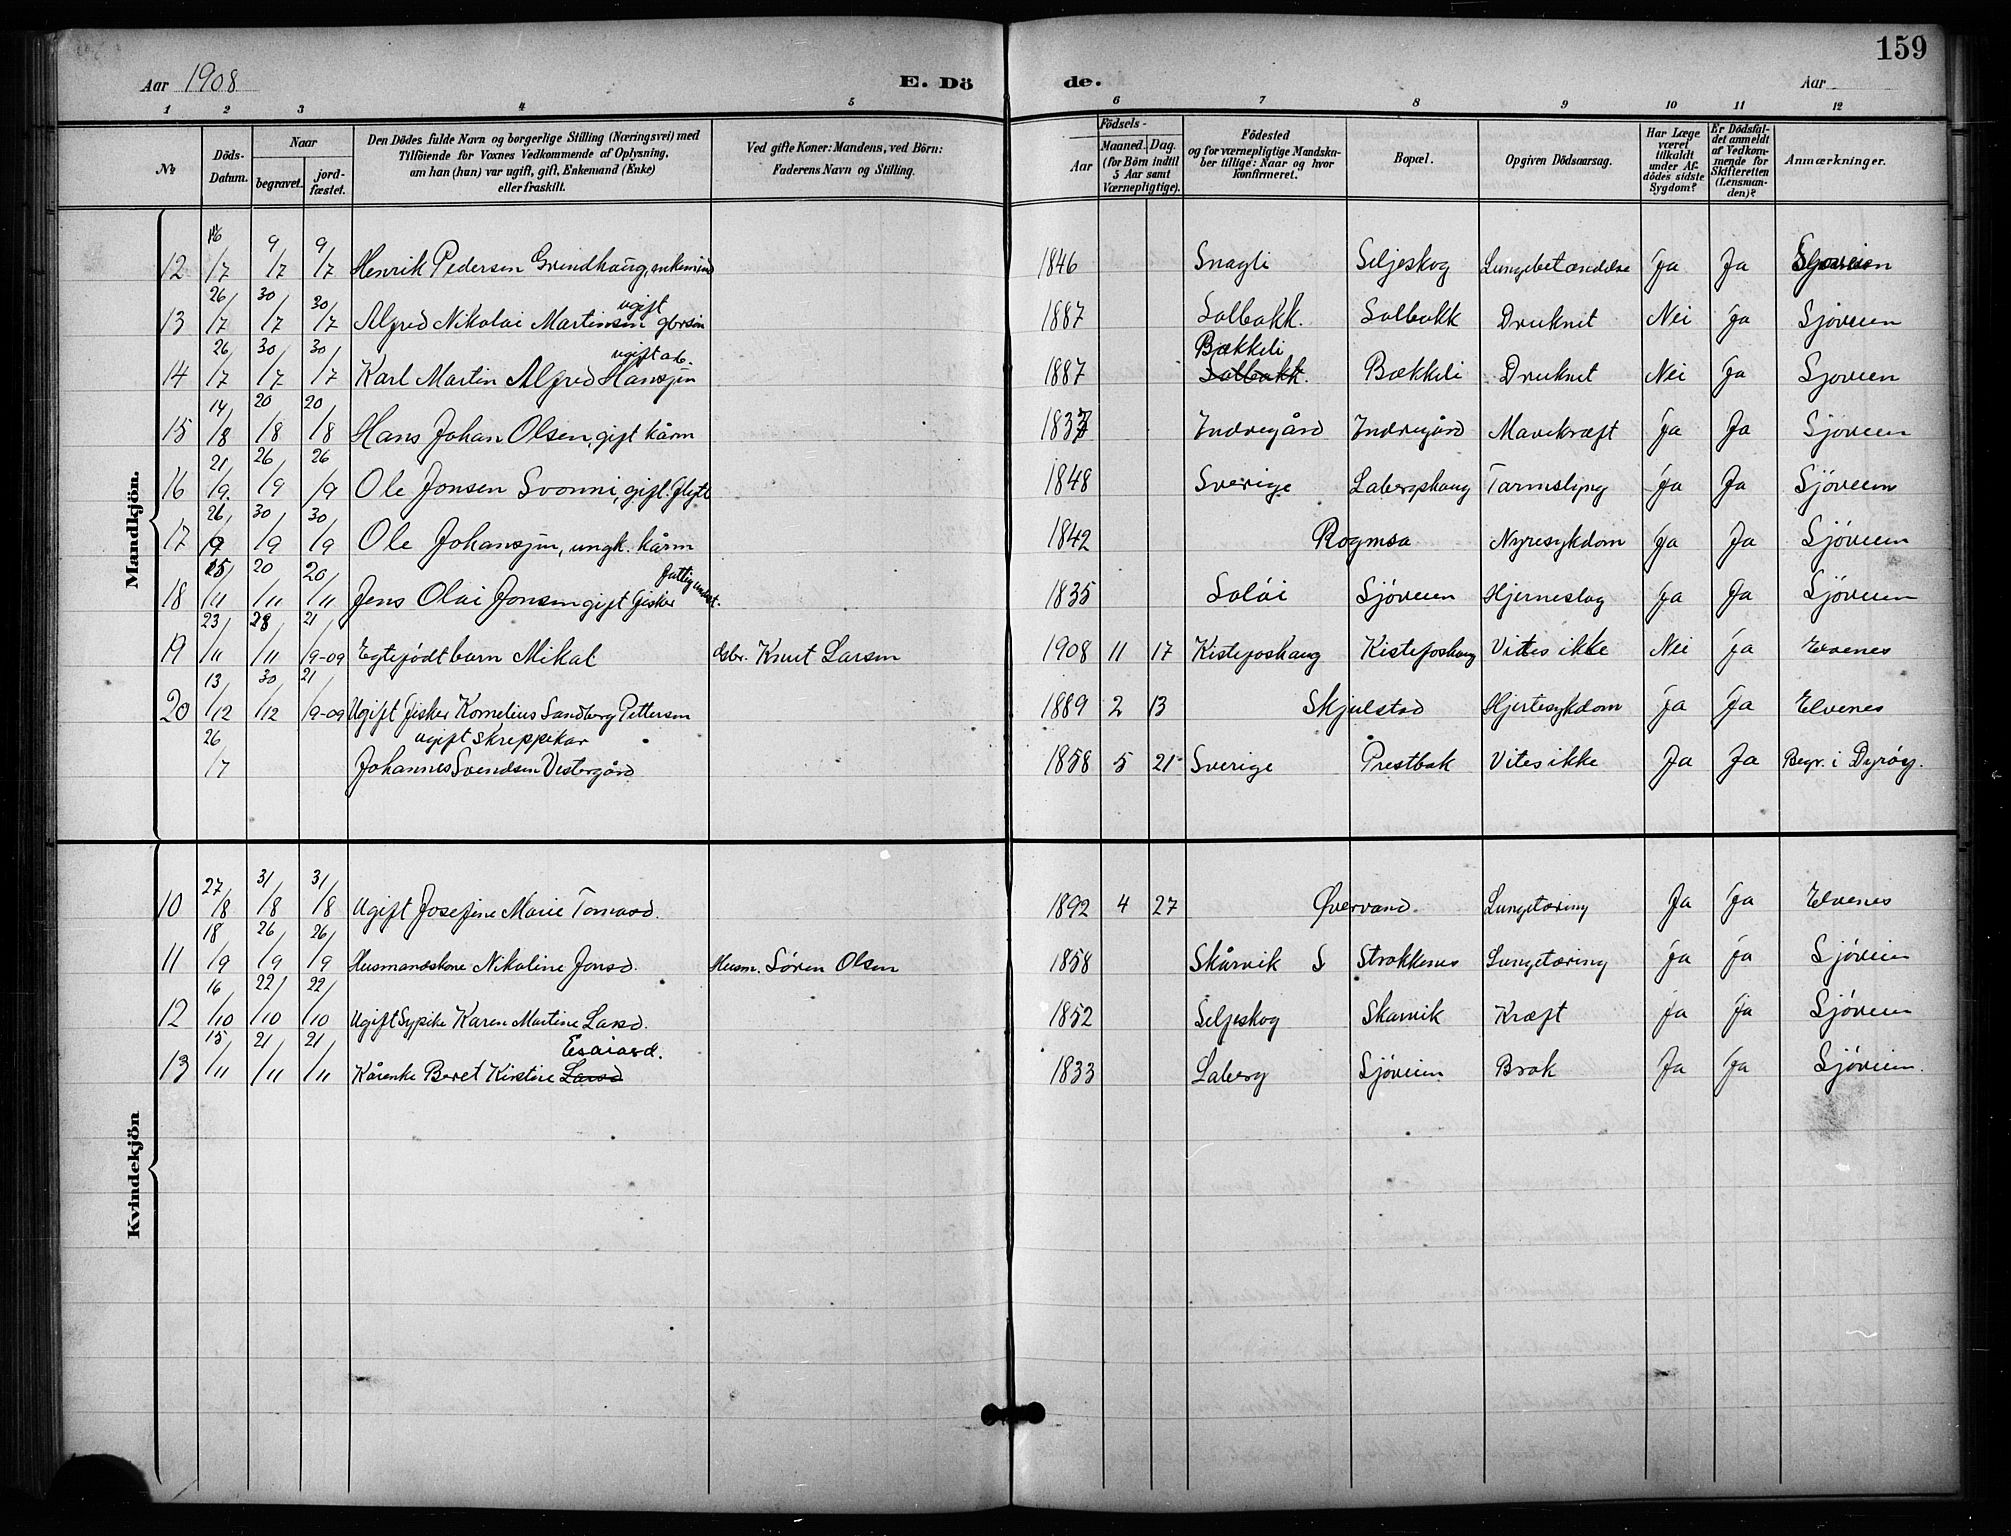 159
Aar 1908 E. Dö de. Aar
1 2 3 4 5 6 7 8 9 10 11 12
No Döds-Datum. Naar begravet. jord-fæstet. Den Dödes fulde Navn og borgerlige Stilling (Næringsvei) med Tilföiende for Voxnes Vedkommende af Oplysning, om han (hun) var ugift, gift, Enkemand (Enke) eller fraskilt. Ved gifte Koner: Mandens, ved Börn: Faderens Navn og Stilling. Födsels- Aar Maaned. Dag. (for Börn indtil 5 Aar samt Værnepligtige). Födested og for værnepligtige Mandska-ber tillige: Naar og hvor konfirmeret. Bopæl. Opgiven Dödsaarsag. Har Læge været tilkaldt under Af-dödes sidste Sygdom? Er Dödsfal-det anmeldt af Vedkom-mende for Skifteretten (Lensman-den)? Anmærkninger.
Mandkjön.
12 /7 9/7 9/7 Henrik Pedersen Grindhaug, enkemand 1846 Snagli Seljeskog Lungebetændelse Ja Ja Sjøveien
13 26/7 30/7 30/7 Alfred Nikolai Martinsen ugift 1887 Solbakk. Solbakk Druknet Nei Ja Sjøveien
14 26/7 30/7 30/7 Karl Martin Alfred Hansen ugift arb. 1887 Bækkeli Solbakk. Bækkeli Druknet Nei Ja Sjøveien
15 14/8 20/8 20/8 Hans Johan Olsen, gift kårm 1837 Indregård Indregård Mavekræft Ja Ja Sjøveien
16 21/9. 26/9 26/9 Ole Jonsen Svonni, gift. 1848 Sverige Labergshaug Tarmslyng Ja Ja Sjøveien
17 26/9 30/9 30/9 Ole Johansen, ungk. kårm 1842 Rogmsa Nyresykdom Ja Ja Sjøveien
18 15/11 20/11 20/11 Jens Olai Jonsen gift fisker fattigunderst. 1835 Soløi Sjøveien Hjerneslag Ja Ja Sjøveien
19 23/11 28/11 21/9-09 Egtefødt barn Mikal Knut Larsen 1908 11 17 Kistefoshaug Kistefoshaug Vites ikke Nei Ja Elvenes
20 13/12 30/12 21/9-09 Ugift fisker Kornelius Sandberg Pettersen 1889 2 13 Skjelstad Hjertesykdom Ja Ja Elvenes
26/7 ugift skreppekar Johannes Svendsen Vestergård 1858 5 21 Sverige Prestbak Vites ikke Ja Ja Begr. i Dyrøy.
Kvindekjön
10 27/8 31/8 31/8 Ugift Josefine Marie Tomasd. 1892 4 27 Øvervand. Lungetæring Ja Ja Elvenes
11 18/9 26/9 26/9 Husmandskone Nikoline Jonsd. Husm. Søren Olsen 1858 Skårvik S Strokkenes Lungetæring Ja Ja Sjøveien
12 16/10 22/10 22/10 Ugift Sypike Karen Martine Larsd. 1852 Seljeskog Skarvik Kræft Ja Ja Sjøveien
13 15/11 21/11 21/11 Kårenke Beret Kirstine Larsd Esaiasd. 1833 Laberg Sjøveien Brok Ja Ja Sjøveien.